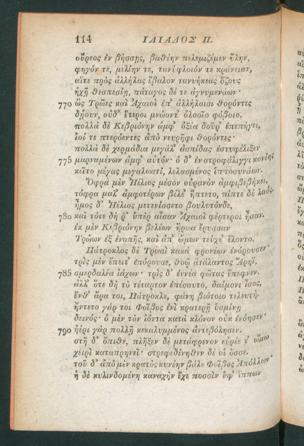 114 ΙΛΙΑΔΟΣ Π.
οὔρεος ἐν βήσσῃς, βαθέην πελεμιζέμεν ὕλην,
φηγόν τε, μελίην τε, τανύφλοιόν τε κράνειαν,
αἵτε πρὸς ἀλλήλας ἔβαλον τανυήκεας ὄζους
ἠχῇ θεσπεσίῃ, πάταγος δέ τε ἀγνυμενάων·
770 ὣς Τρῶες καὶ Ἀχαιοὶ ἐπ' ἀλλήλοισι θορόντες
δῄουν, οὐδ' ἕτεροι μνώοντ' ὀλοοῖο φόβοιο.
πολλὰ δὲ Κεβριόνην ἀμφ' ὀξέα δοῦρ' ἐπεπήγει,
ἰοί τε πτερόεντες ἀπὸ νευρῆφι θορόντες·
πολλὰ δὲ χερμάδια μεγάλ' ἀσπίδας ἐστυφέλιξεν
775 μαρναμένων ἀμφ' αὐτόν· ὁ δ' ἐν στροφάλιγγι κονίης
κεῖτο μέγας μεγαλωστί, λελασμένος ἱπποσυνάων.
Ὄφρα μὲν Ἠέλιος μέσον οὐρανὸν ἀμφιβεβήκει,
τόφρα μάλ' ἀμφοτέρων βέλε' ἥπτετο, πῖπτε δὲ λαός·
ἦμος δ' Ἠέλιος μετενίσσετο βουλυτόνδε,
780 καὶ τότε δή ῥ' ὑπὲρ αἶσαν Ἀχαιοὶ φέρτεροι ἦσαν.
ἐκ μὲν Κεβριόνην βελέων ἥρωα ἔρυσσαν
Τρώων ἐξ ἐνοπῆς, καὶ ἀπ' ὤμων τεύχε' ἕλοντο.
Πάτροκλος δὲ Τρωσὶ κακὰ φρονέων ἐνόρουσεν·
τρὶς μὲν ἔπειτ' ἐπόρουσε, θοῷ ἀτάλαντος Ἄρηϊ,
785 σμερδαλέα ἰάχων· τρὶς δ' ἐννέα φῶτας ἔπεφνεν.
ἀλλ' ὅτε δὴ τὸ τέταρτον ἐπέσσυτο, δαίμονι ἶσος,
ἔνθ' ἄρα τοι, Πάτροκλε, φάνη βιότοιο τελευτή·
ἤντετο γάρ τοι Φοῖβος ἐνὶ κρατερῇ ὑσμίνῃ
δεινός· ὁ μὲν τὸν ἰόντα κατὰ κλόνον οὐκ ἐνόησεν·
790 ἠέρι γὰρ πολλῇ κεκαλυμμένος ἀντεβόλησεν.
στῆ δ' ὄπιθε, πλῆξεν δὲ μετάφρενον εὐρέε τ' ὤμω
χειρὶ καταπρηνεῖ· στρεφεδίνηθεν δέ οἱ ὄσσε.
τοῦ δ' ἀπὸ μὲν κρατὸς κυνέην βάλε Φοῖβος Ἀπόλλων·
ἡ δὲ κυλινδομένη καναχὴν ἔχε ποσσὶν ὑφ' ἵππων